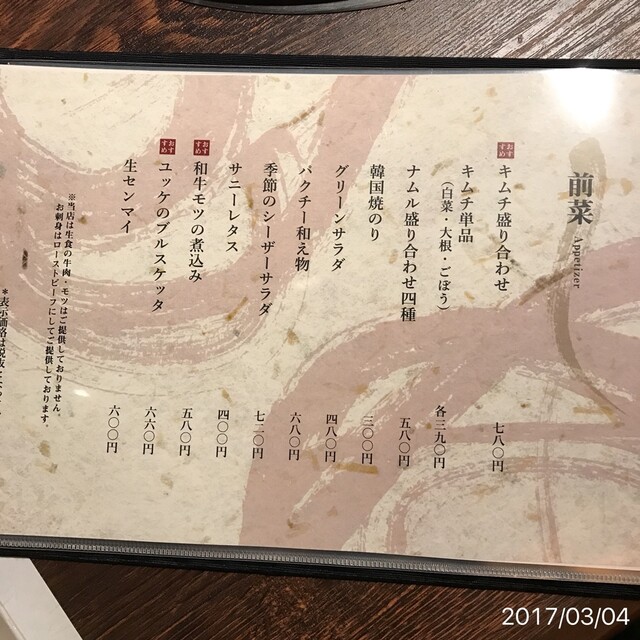 前菜 Appetizer
おすすめ キムチ盛り合わせ 七八〇円
キムチ単品 各三九〇円
（白菜・大根・ごぼう）
ナムル盛り合わせ四種 五八〇円
韓国焼のり 三〇〇円
グリーンサラダ 四八〇円
パクチー和え物 六八〇円
季節のシーザーサラダ 七二〇円
サニーレタス 四〇〇円
おすすめ 和牛モツの煮込み 五八〇円
おすすめ ユッケのブルスケッタ 六六〇円
生センマイ 六〇〇円
※当店は生食の牛肉・モツはご提供しておりません。
お刺身はローストビーフにしてご提供しております。
＊表示価格は税抜
2017/03/04